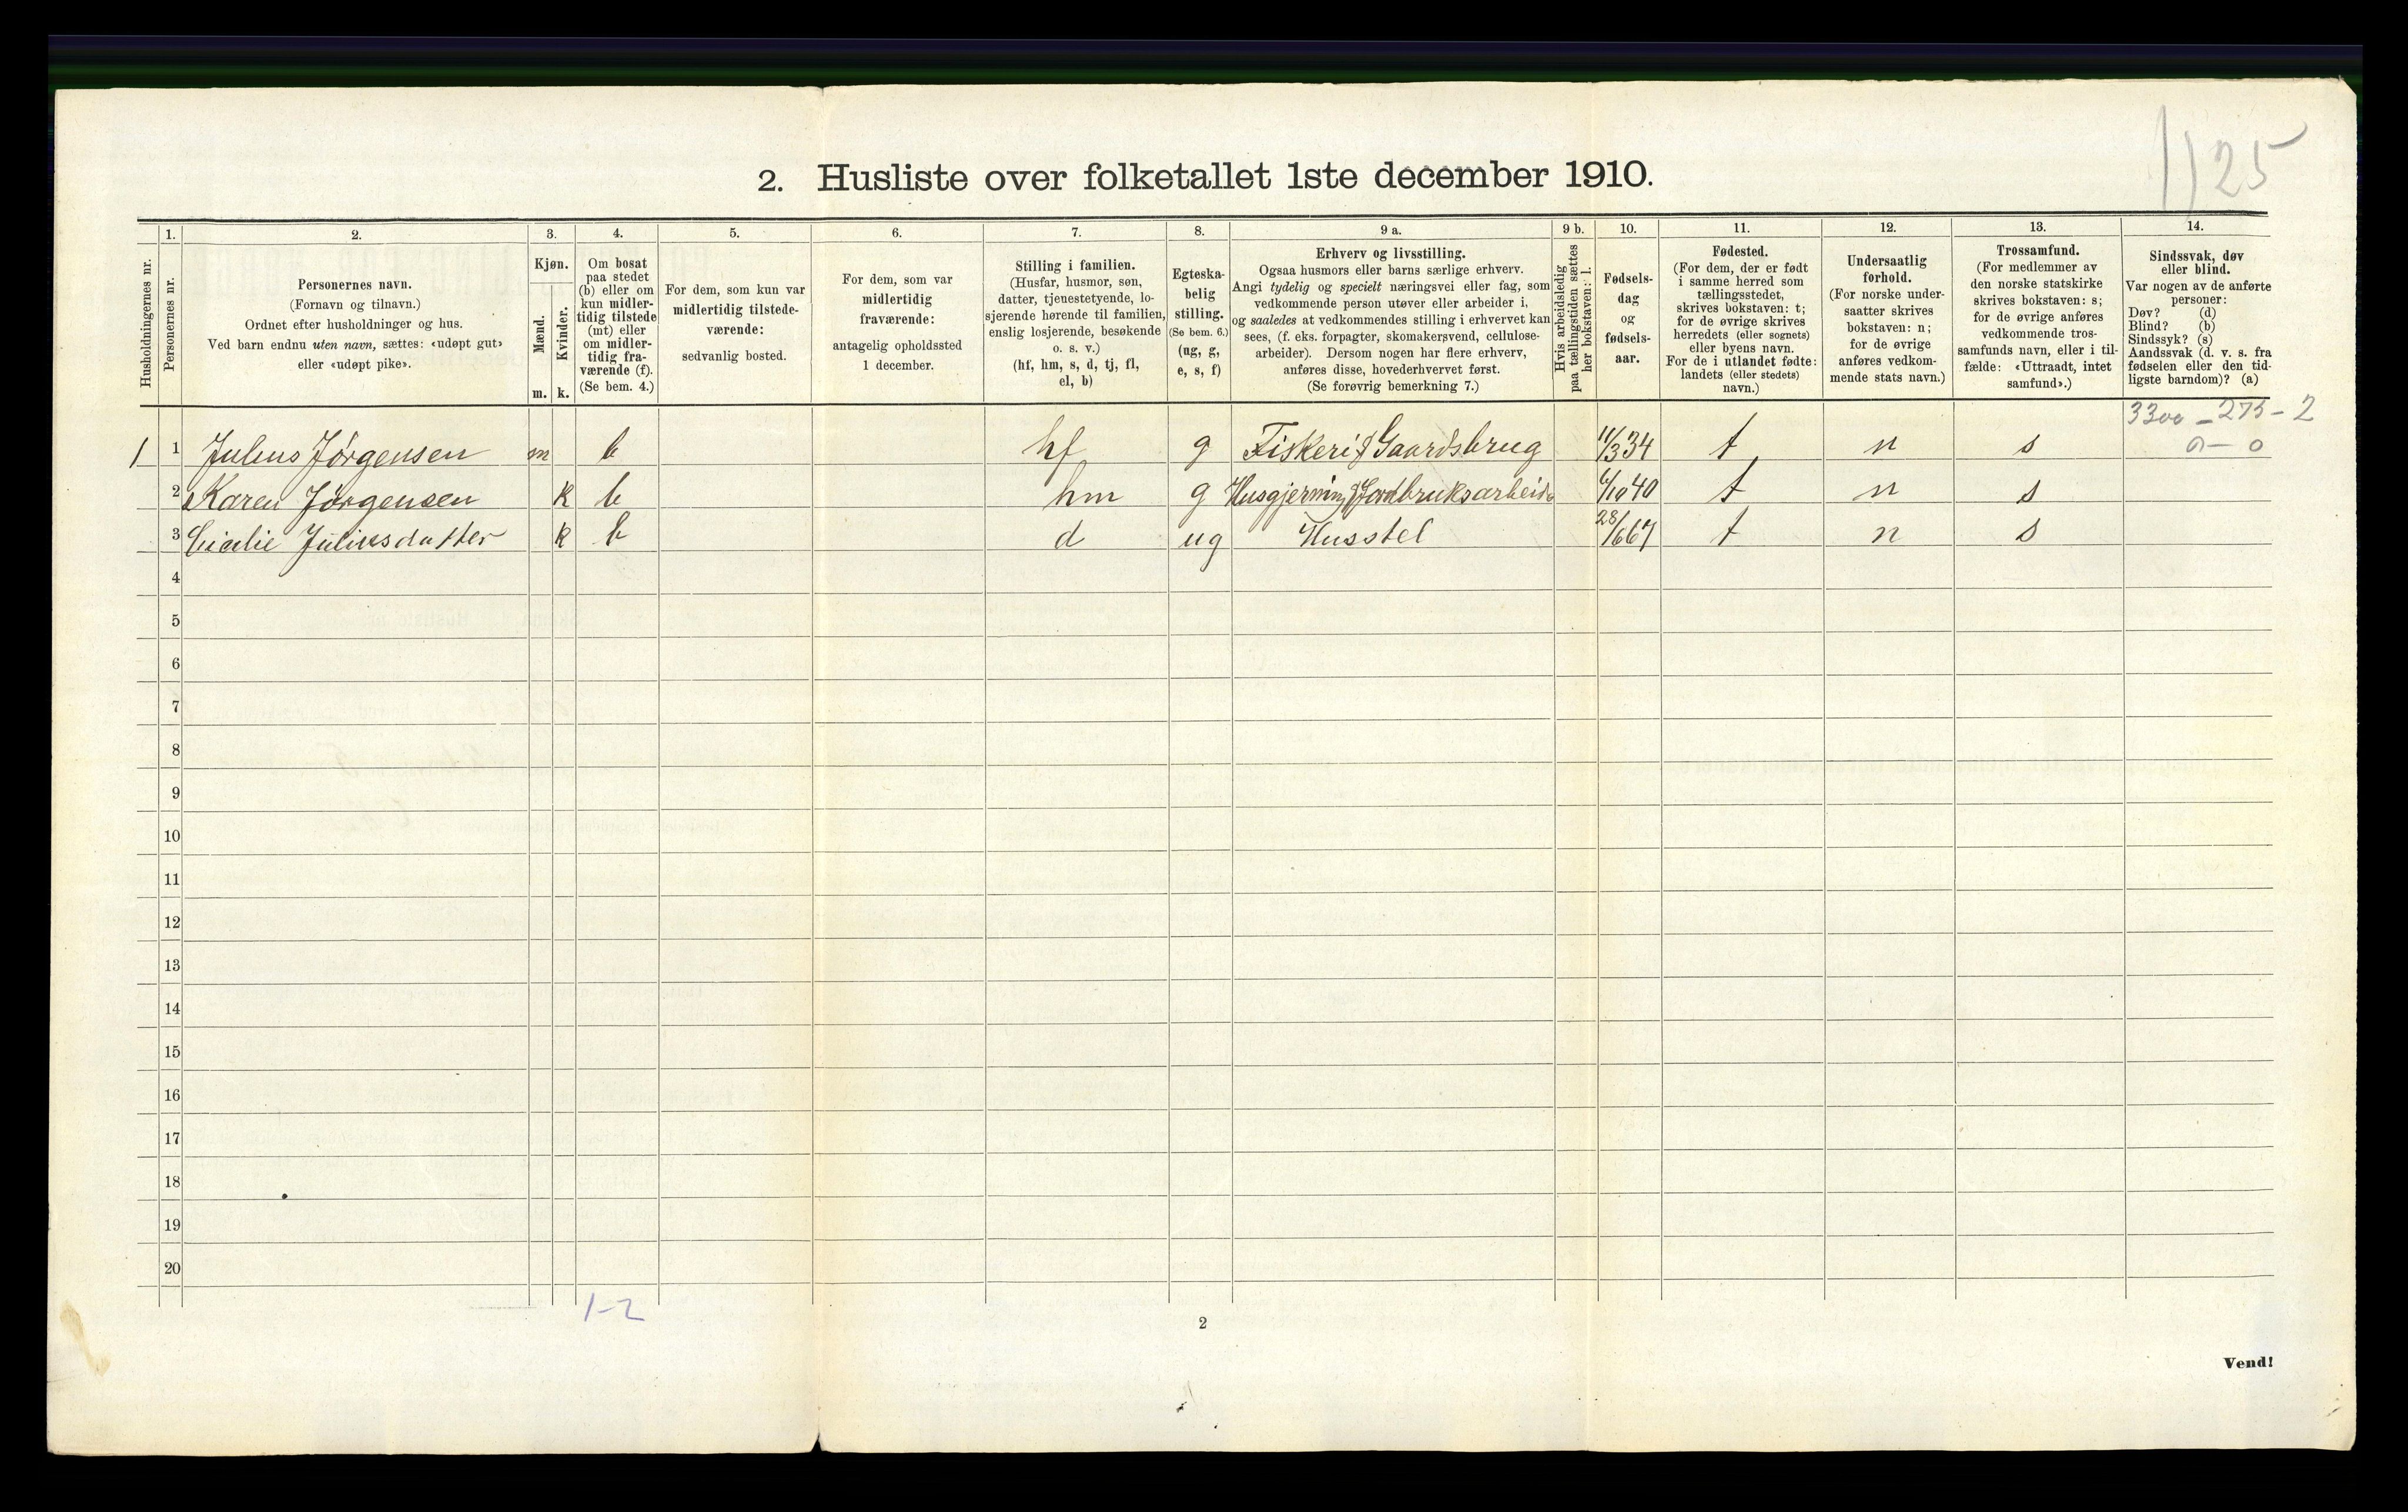 1125
2. Husliste over folketallet 1ste december 1910.
Husholdningernes nr.
1.
Personernes nr.
2.
Personernes navn.
(Fornavn og tilnavn.)
Ordnet efter husholdninger og hus.
Ved barn endnu uten navn, sættes: «udøpt gut»
eller «udøpt pike».
3.
Kjøn.
Mænd.
Kvinder.
m. k.
4.
Om bosat
paa stedet
(b) eller om
kun midler-
tidig tilstede
(mt) eller
om midler-
tidig fra-
værende (f).
(Se bem. 4.)
5.
For dem, som kun var
midlertidig tilstede-
værende:
sedvanlig bosted.
6.
For dem, som var
midlertidig
fraværende:
antagelig opholdssted
1 december.
7.
Stilling i familien.
(Husfar, husmor, søn,
datter, tjenestetyende, lo-
sjerende hørende til familien,
enslig losjerende, besøkende
o. s. v.)
(hf, hm, s, d, tj, fl,
el, b)
8.
Egteska-
belig
stilling.
(Se bem. 6.)
(ug, g,
e, s, f)
9 a.
Erhverv og livsstilling.
Ogsaa husmors eller barns særlige erhverv.
Angi tydelig og specielt næringsvei eller fag, som
vedkommende person utøver eller arbeider i,
og saaledes at vedkommendes stilling i erhvervet kan
sees, (f. eks. forpagter, skomakersvend, cellulose-
arbeider). Dersom nogen har flere erhverv,
anføres disse, hovederhvervet først.
(Se forøvrig bemerkning 7.)
9 b.
Hvis arbeidsledig
paa tællingstiden sættes
her bokstaven: l.
10.
Fødsels-
dag
og
fødsels-
aar.
11.
Fødested.
(For dem, der er født
i samme herred som
tællingsstedet,
skrives bokstaven: t;
for de øvrige skrives
herredets (eller sognets)
eller byens navn.
For de i utlandet fødte:
landets (eller stedets)
navn.)
12.
Undersaatlig
forhold.
(For norske under-
saatter skrives
bokstaven: n;
for de øvrige
anføres vedkom-
mende stats navn.)
13.
Trossamfund.
(For medlemmer av
den norske statskirke
skrives bokstaven: s;
for de øvrige anføres
vedkommende tros-
samfunds navn, eller i til-
fælde: «Uttraadt, intet
samfund».)
14.
Sindssvak, døv
eller blind.
Var nogen av de anførte
personer:
Døv? (d)
Blind? (b)
Sindssyk? (s)
Aandssvak (d. v. s. fra
fødselen eller den tid-
ligste barndom)? (a)
3300 - 275 - 2
0 - 0
1 1 Julius Jørgensen m b hf g Fiskeri & Gaardsbrug 11/3 34 t n s
2 Karen Jørgensen k b hm g Husgjerning & Jordbruksarbeide 6/10 40 t n s
3 Juliusdatter k b d ug Husstel 28/6 67 t n s
4
5
6
7
8
9
10
11
12
13
14
15
16
17
18
19
20
1-2
2
Vend!